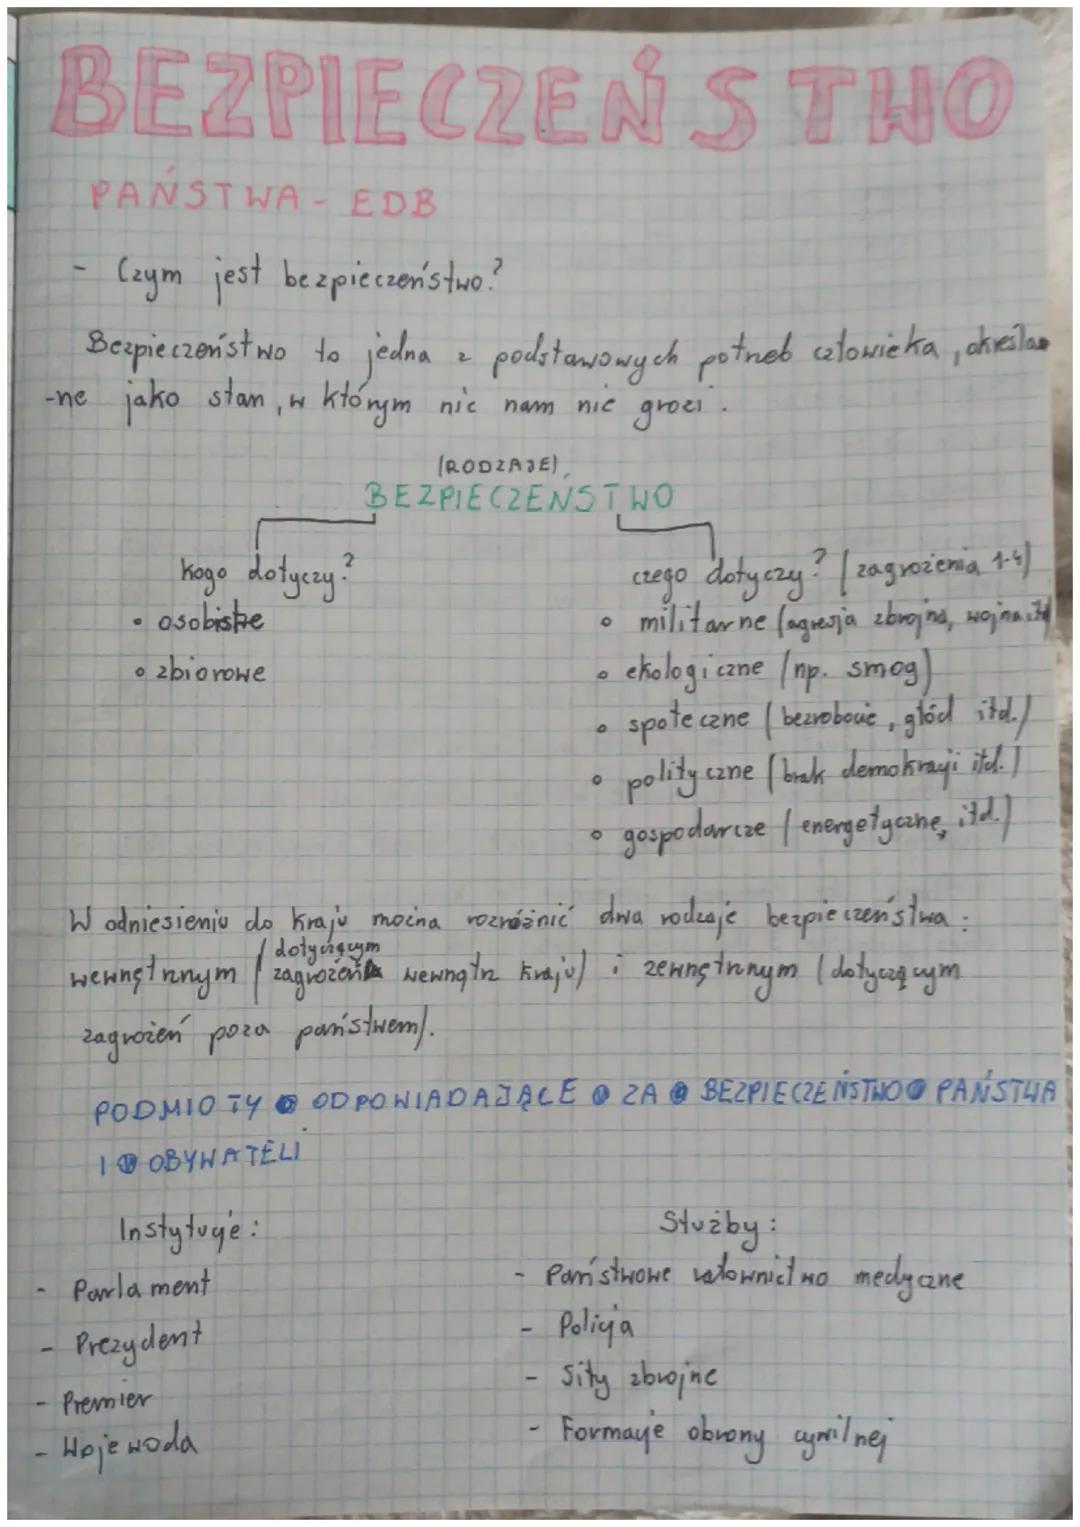 BEZPIECZEŃSTWO
PAŃSTWA - EDB
- Czym jest bezpieczeństwo?
Bezpieczeństwo to jedna z podstawowych potrzeb człowieka, określa
-ne jako stan, w którym nic nam nie grozi.
(RODZAJE)
BEZPIECZEŃSTWO
kogo dotyczy?
• osobiste
• zbiorowe
czego dotyczy? (zagrożenia 1-4)
• militarne (agresja zbrojna, wojna itd
• ekologiczne (np. smog)
• społeczne (bezrobocie, głód itd.)
• polityczne (brak demokracji itd.)
• gospodarcze (energetyczne, itd.)
W odniesieniu do kraju można rozróżnić dwa rodzaje bezpieczeństwa:
wewnętrznym (dotyczącym zagrożeń wewnątrz kraju) i zewnętrznym (dotyczącym
zagrożeń poza państwem).
PODMIOTY ODPOWIADAJĄCE ZA BEZPIECZEŃSTWO PAŃSTWA
I OBYWATELI
Instytucje:
- Parlament
- Prezydent
- Premier
- Wojewoda
Służby:
- Państwowe ratownictwo medyczne
- Policja
- Siły zbrojne
- Formacje obrony cywilnej